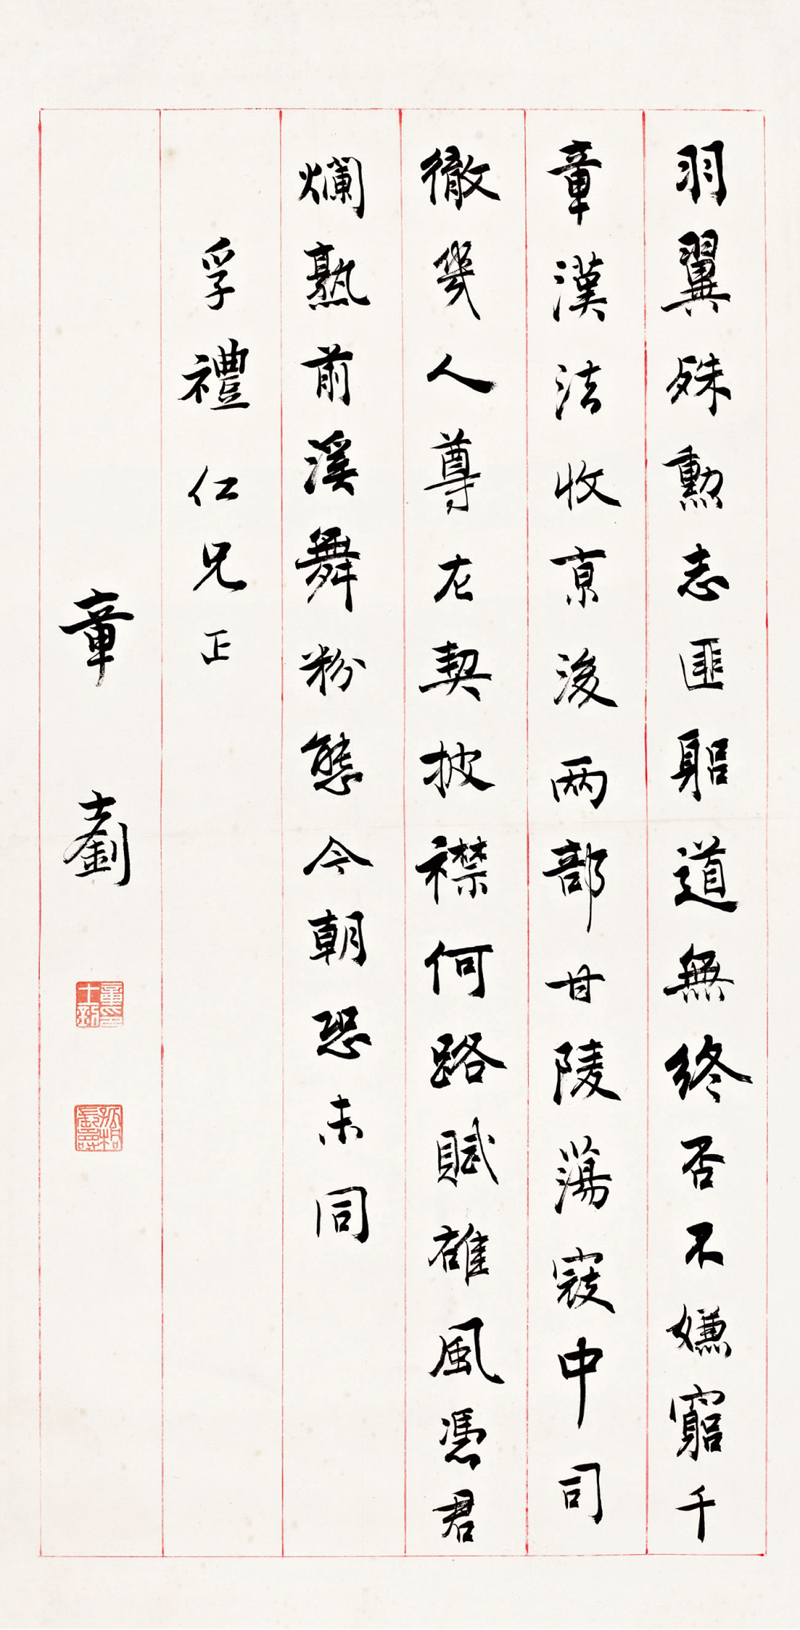 羽翼殊勳志匪躳道無終否不嫌竆千
章漢法收京後兩部甘陵蕩寇中司
徹幾人尊左契披襟何路賦雄風憑君
爛熟前溪舞粉態今朝恐未同
孚禮仁兄正
章士釗
章士釗印